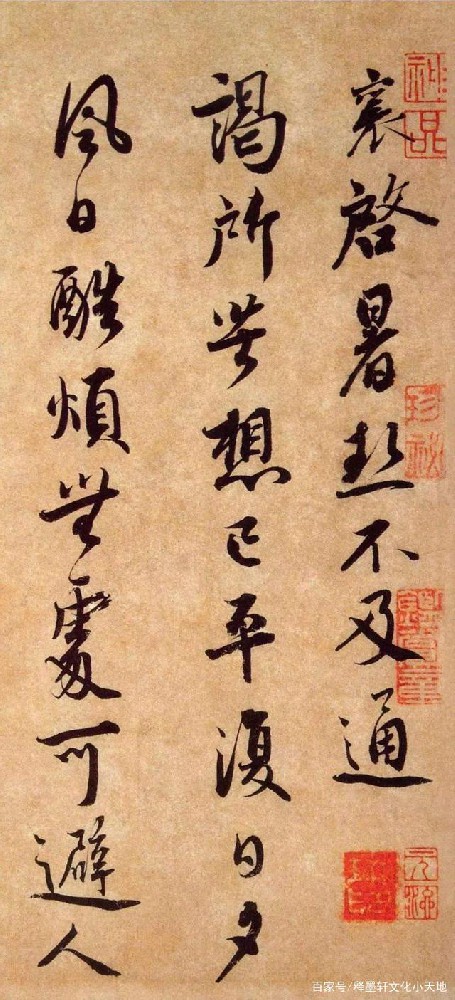 襄啓暑熱不及通
謁所苦想已平復日夕
風日酷煩無處可避人
神品
珍祕
百家号/墨轩文化小天地